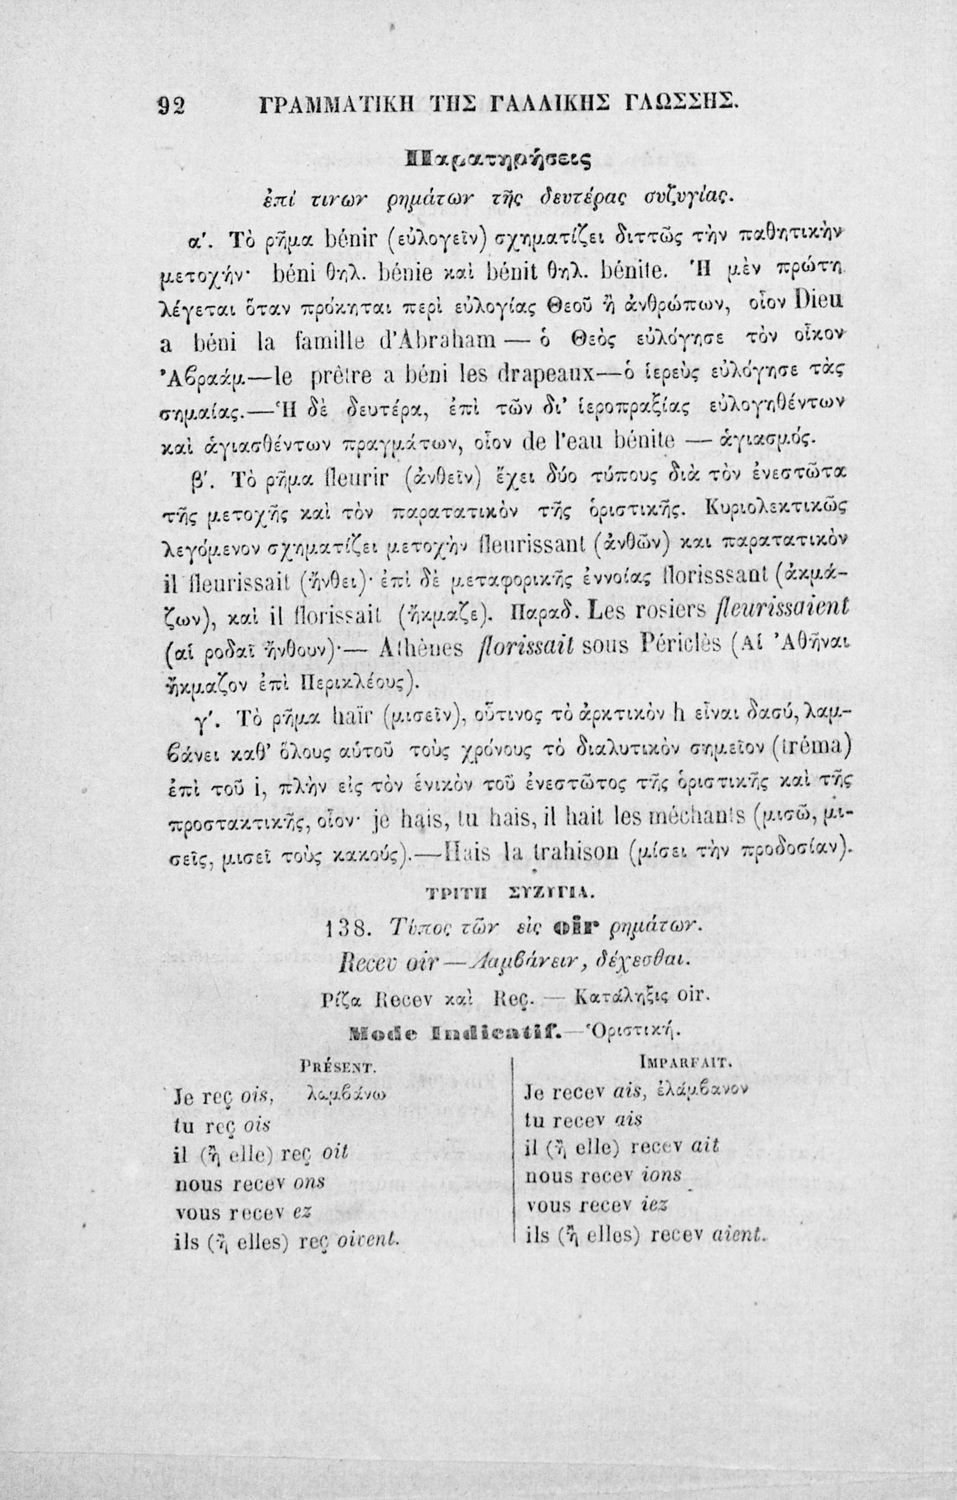 92 ΓΡΑΜΜΑΤΙΚΗ ΤΗΣ ΓΑΛΛΙΚΗΣ ΓΛΩΣΣΗΣ.
Παρατηρήσεις
ἐπί τινων ρημάτων τῆς δευτέρας συζυγίας.
α'. Τὸ ρῆμα bénir (εὐλογεῖν) σχηματίζει διττῶς τὴν παθητικὴν
μετοχήν· béni θηλ. bénie καὶ bénit θηλ. bénite. Ἡ μὲν πρώτη
λέγεται ὅταν πρόκηται περὶ εὐλογίας Θεοῦ ἢ ἀνθρώπων, οἷον Dieu
a béni la famille d'Abraham — ὁ Θεὸς εὐλόγησε τὸν οἶκον
Ἀβραάμ—le prêtre a béni les drapeaux—ὁ ἱερεὺς εὐλόγησε τὰς
σημαίας.—Ἡ δὲ δευτέρα, ἐπὶ τῶν δι' ἱεροπραξίας εὐλογηθέντων
καὶ ἁγιασθέντων πραγμάτων, οἷον de l'eau bénite — ἁγιασμός.
β'. Τὸ ρῆμα fleurir (ἀνθεῖν) ἔχει δύο τύπους διὰ τὸν ἐνεστῶτα
τῆς μετοχῆς καὶ τὸν παρατατικὸν τῆς ὁριστικῆς. Κυριολεκτικῶς
λεγόμενον σχηματίζει μετοχὴν fleurissant (ἀνθῶν) και παρατατικὸν
il fleurissait (ἤνθει)· ἐπὶ δὲ μεταφορικῆς ἐννοίας florisssant (ἀκμά-
ζων), καὶ il florissait (ἤκμαζε). Παραδ. Les rosiers fleurissaient
(αἱ ροδαῖ ἤνθουν)·— Athènes florissait sous Périclès (Αἱ Ἀθῆναι
ἤκμαζον ἐπὶ Περικλέους).
γ'. Τὸ ρῆμα haïr (μισεῖν), οὗτινος τὸ ἀρκτικὸν h εἶναι δασύ, λαμ-
βάνει καθ' ὅλους αὑτοῦ τοὺς χρόνους τὸ διαλυτικὸν σημεῖον (tréma)
ἐπὶ τοῦ i, πλὴν εἰς τὸν ἑνικὸν τοῦ ἐνεστῶτος τῆς ὁριστικῆς καὶ τῆς
προστακτικῆς, οἷον· je hais, tu hais, il hait les méchants (μισῶ, μι-
σεῖς, μισεῖ τοὺς κακούς).—Hais la trahison (μίσει τὴν προδοσίαν).
ΤΡΙΤΗ ΣΥΖΥΓΙΑ.
138. Τύπος τῶν εἰς oir ρημάτων.
Recev oir—Λαμβάνειν, δέχεσθαι.
Ρίζα Recev καὶ Reç. — Κατάληξις oir.
Mode Indicatif.—Ὁριστική.
PRÉSENT.
Je reç ois, λαμβάνω
tu reç ois
il (ἢ elle) reç oit
nous recev ons
vous recev ez
ils (ἢ elles) reç oivent.
IMPARFAIT.
Je recev ais, ἐλάμβανον
tu recev ais
il (ἢ elle) recev ait
nous recev ions
vous recev iez
ils (ἢ elles) recev aient.